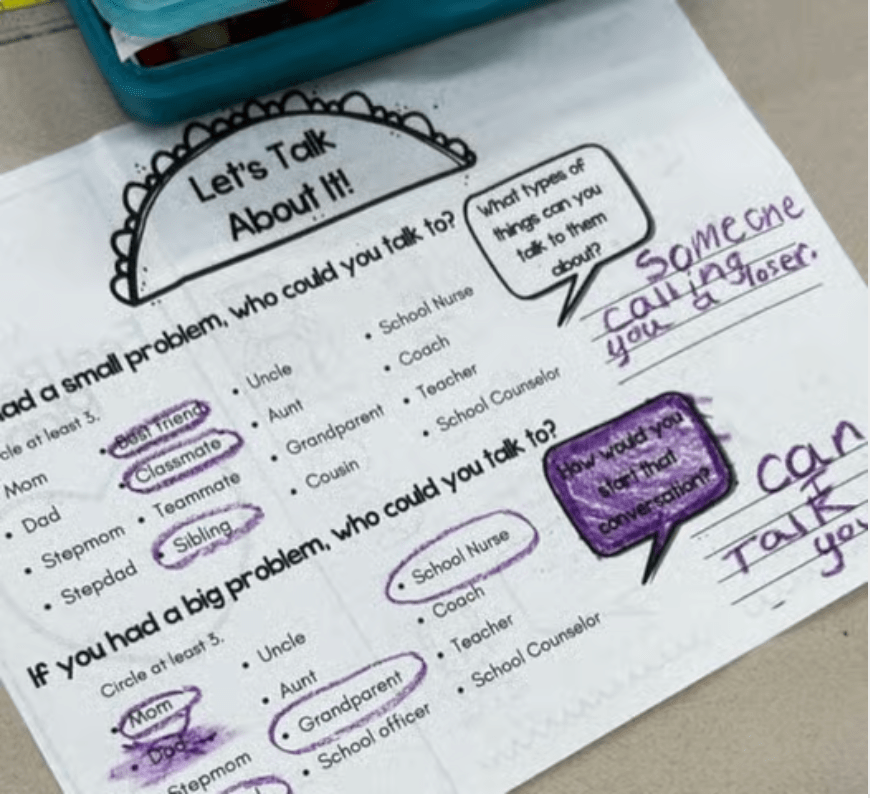 Let's Talk
About It!
had a small problem, who could you talk to?
cle at least 3.
Mom
• Dad
• Stepmom
• Stepdad
• Best friend
• Classmate
• Teammate
• Sibling
• Uncle
• Aunt
• Grandparent
• Cousin
• School Nurse
• Coach
• Teacher
• School Counselor
What types of
things can you
talk to them
about?
Someone
calling
you a loser.
If you had a big problem, who could you talk to?
Circle at least 3.
• Mom
• Dad
Stepmom
• Uncle
• Aunt
• Grandparent
• School officer
• School Nurse
• Coach
• Teacher
• School Counselor
How would you
start that
conversation?
can
I
Talk
you